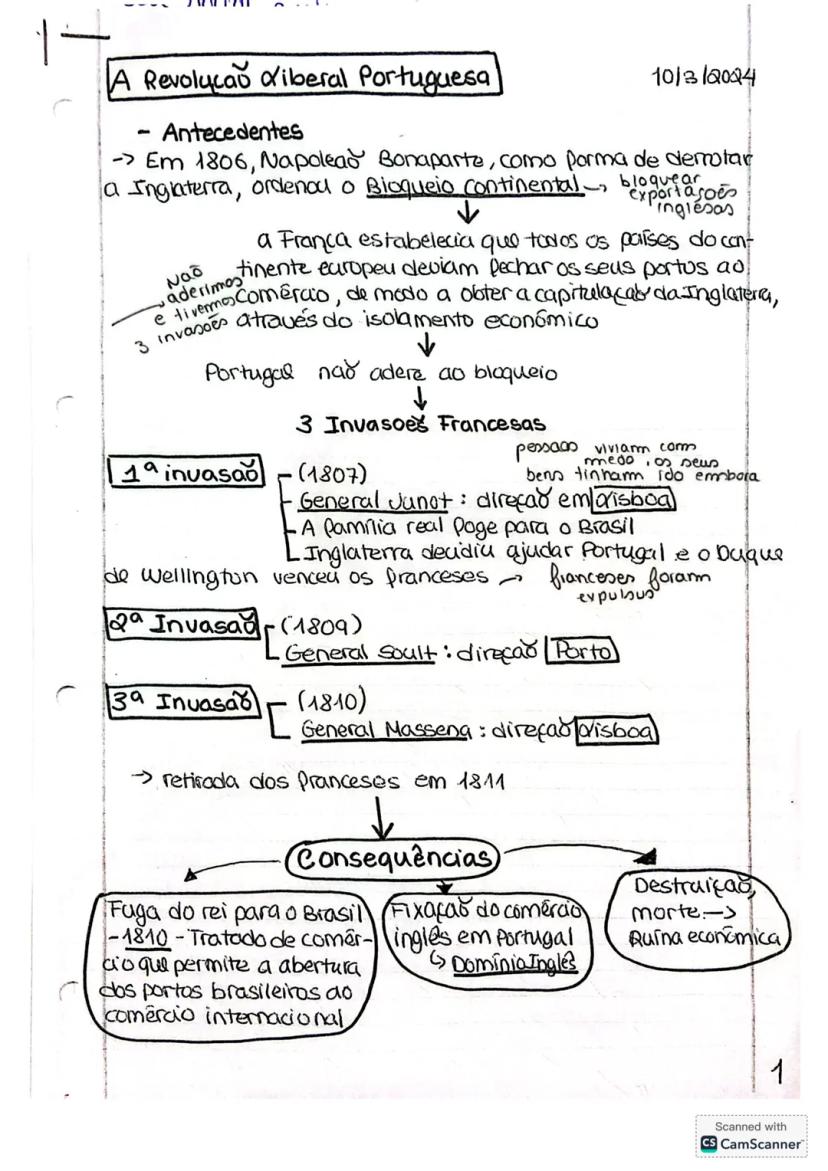 A Revolução Liberal Portuguesa
10/3/2024
- Antecedentes
-> Em 1806, Napoleão Bonaparte, como forma de derrotar
a Inglaterra, ordenou o Bloqueio continental -> bloquear
exportações
inglesas
a França estabelecia que todos os países do con-
tinente europeu deviam fechar os seus portos ao
comércio, de modo a obter a capitulação da Inglaterra,
através do isolamento económico
Não
aderimos
e tivemos
3 invasões
Portugal não adere ao bloqueio
3 Invasões Francesas
1ª invasão - (1807)
pessoas viviam com
medo, os seus
bens tinham ido embora
General Junot: direção em Lisboa
- A família real foge para o Brasil
Inglaterra decidiu ajudar Portugal e o Duque
de Wellington venceu os franceses -> franceses foram
expulsus
2ª Invasão - (1809)
General Soult: direção Porto
3ª Invasão - (1810)
General Massena: direção Lisboa
-> retirada dos franceses em 1811
Consequências
Fuga do rei para o Brasil
- 1810 - Tratado de comér-
cio que permite a abertura
dos portos brasileiros ao
comércio internacional
Fixação do comércio
inglês em Portugal
↳ Domínio Inglês
Destruição,
morte ->
Ruína económica
1
Scanned with
CS CamScanner